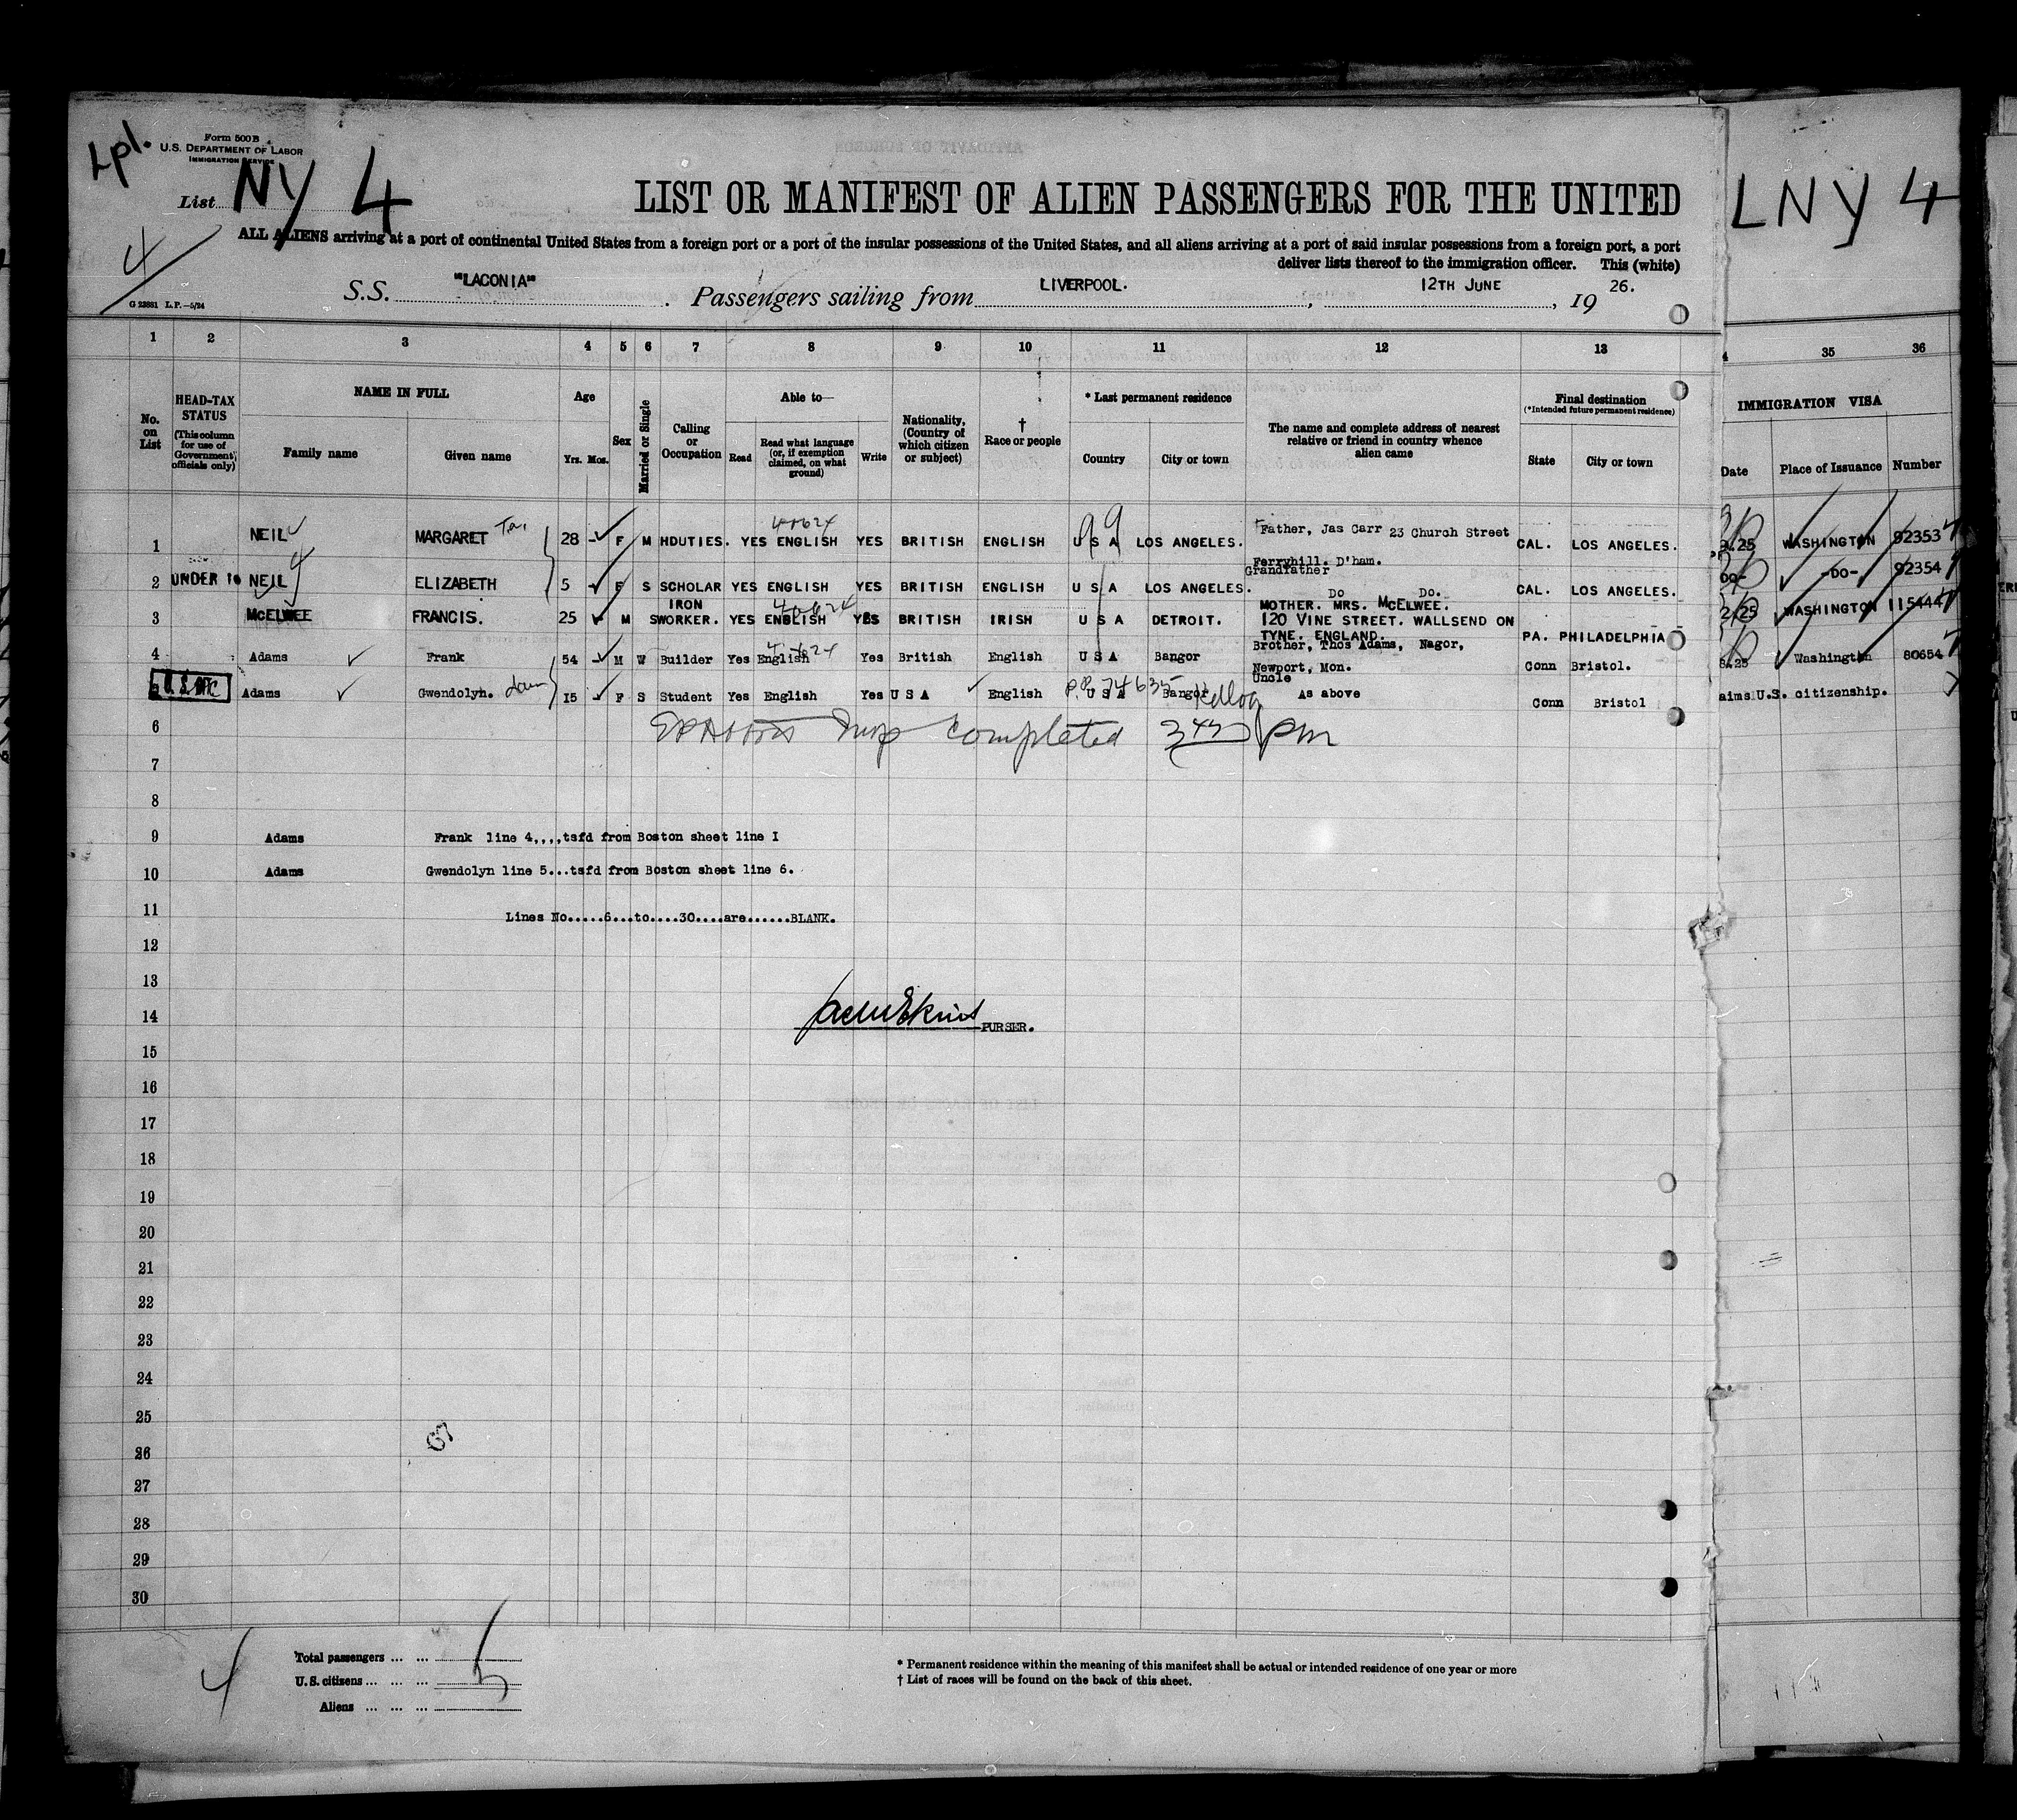 Lpl.
Form 500 B
U.S. DEPARTMENT OF LABOR
IMMIGRATION SERVICE
List NY 4
LIST OR MANIFEST OF ALIEN PASSENGERS FOR THE UNITED
LNY 4
4
ALL ALIENS arriving at a port of continental United States from a foreign port or a port of the insular possessions of the United States, and all aliens arriving at a port of said insular possessions from a foreign port, a port
deliver lists thereof to the immigration officer. This (white)
G 23881 L.P.—5/24
S.S. "LACONIA". Passengers sailing from LIVERPOOL., 12TH JUNE, 19 26.
1 2 3 4 5 6 7 8 9 10 11 12 13 35 36
No. on List
HEAD-TAX STATUS (This column for use of Government officials only)
NAME IN FULL
Family name Given name
Age
Yrs. Mos.
Sex
Married or Single
Calling or Occupation
Able to—
Read Read what language (or, if exemption claimed, on what ground) Write
Nationality, (Country of which citizen or subject)
† Race or people
* Last permanent residence
Country City or town
The name and complete address of nearest relative or friend in country whence alien came
Final destination
(*Intended future permanent residence)
State City or town
IMMIGRATION VISA
Date Place of Issuance Number
1 NEIL MARGARET 28 - F M HDUTIES. YES ENGLISH YES BRITISH ENGLISH U S A LOS ANGELES. Father, Jas Carr 23 Church Street CAL. LOS ANGELES. .25 WASHINGTON 92353
Ferryhill. D'ham.
Grandfather
2 UNDER 16 NEIL ELIZABETH 5 - F S SCHOLAR YES ENGLISH YES BRITISH ENGLISH U S A LOS ANGELES. DO DO. CAL. LOS ANGELES. DO- -DO- 92354
3 McELWEE FRANCIS. 25 M S IRON WORKER. YES ENGLISH YES BRITISH IRISH U S A DETROIT. MOTHER. MRS. McELWEE.
120 VINE STREET. WALLSEND ON
TYNE. ENGLAND. PA. PHILADELPHIA 25 WASHINGTON 115444
4 Adams Frank 54 - M W Builder Yes English Yes British English U S A Bangor Brother, Thos Adams, Nagor,
Newport, Mon. Conn Bristol. .25 Washington 80654
Uncle
5 Adams Gwendolyn. 15 F S Student Yes English Yes U S A English U S A Bangor As above Conn Bristol aims U.S. citizenship.
6 completed pm
7
8
9 Adams Frank line 4,,,,tsfd from Boston sheet line I
10 Adams Gwendolyn line 5...tsfd from Boston sheet line 6.
11 Lines No.....6...to....30....are......BLANK.
12
13
14 PURSER.
15
16
17
18
19
20
21
22
23
24
25
26
27
28
29
30
4
Total passengers ... ... 5
U.S. citizens ... ... ...
Aliens ... ... ...
* Permanent residence within the meaning of this manifest shall be actual or intended residence of one year or more
† List of races will be found on the back of this sheet.